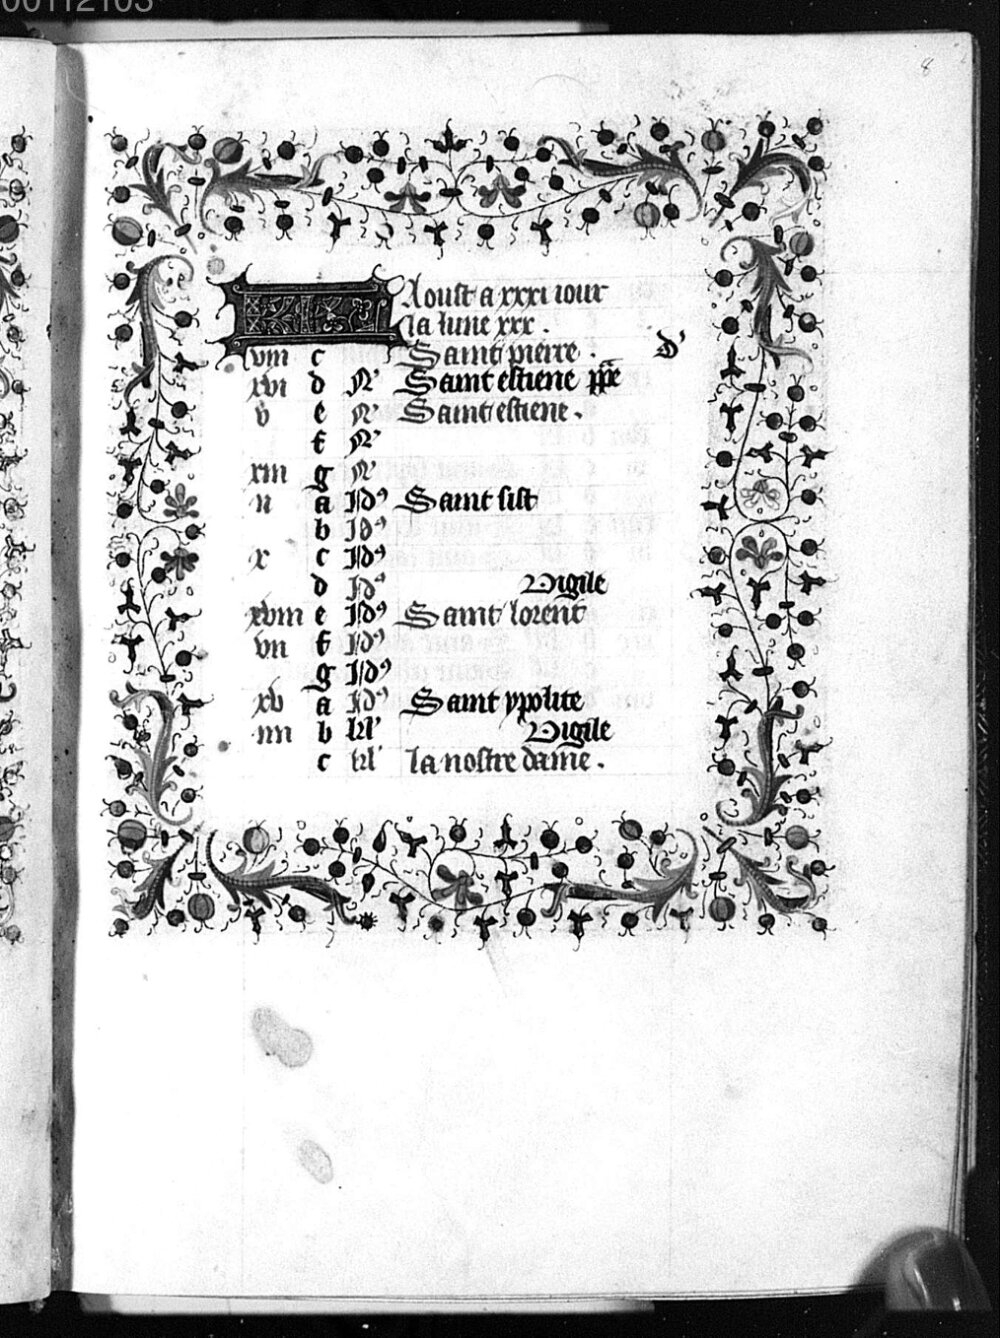 00112103
8
Aoust a xxxi iour
la lune xxx .
viii c Saint pierre . D'
xvi d N' Saint estiene ppe
v e N' Saint estiene .
f N'
xiii g N'
ii a Id9 Saint sist
b Id9
x c Id9
d Id9 Vigile
xviii e Id9 Saint lorent
vii f Id9
g Id9
xv a Id9 Saint ypolite
iiii b kl' Vigile
c kl' la nostre dame .